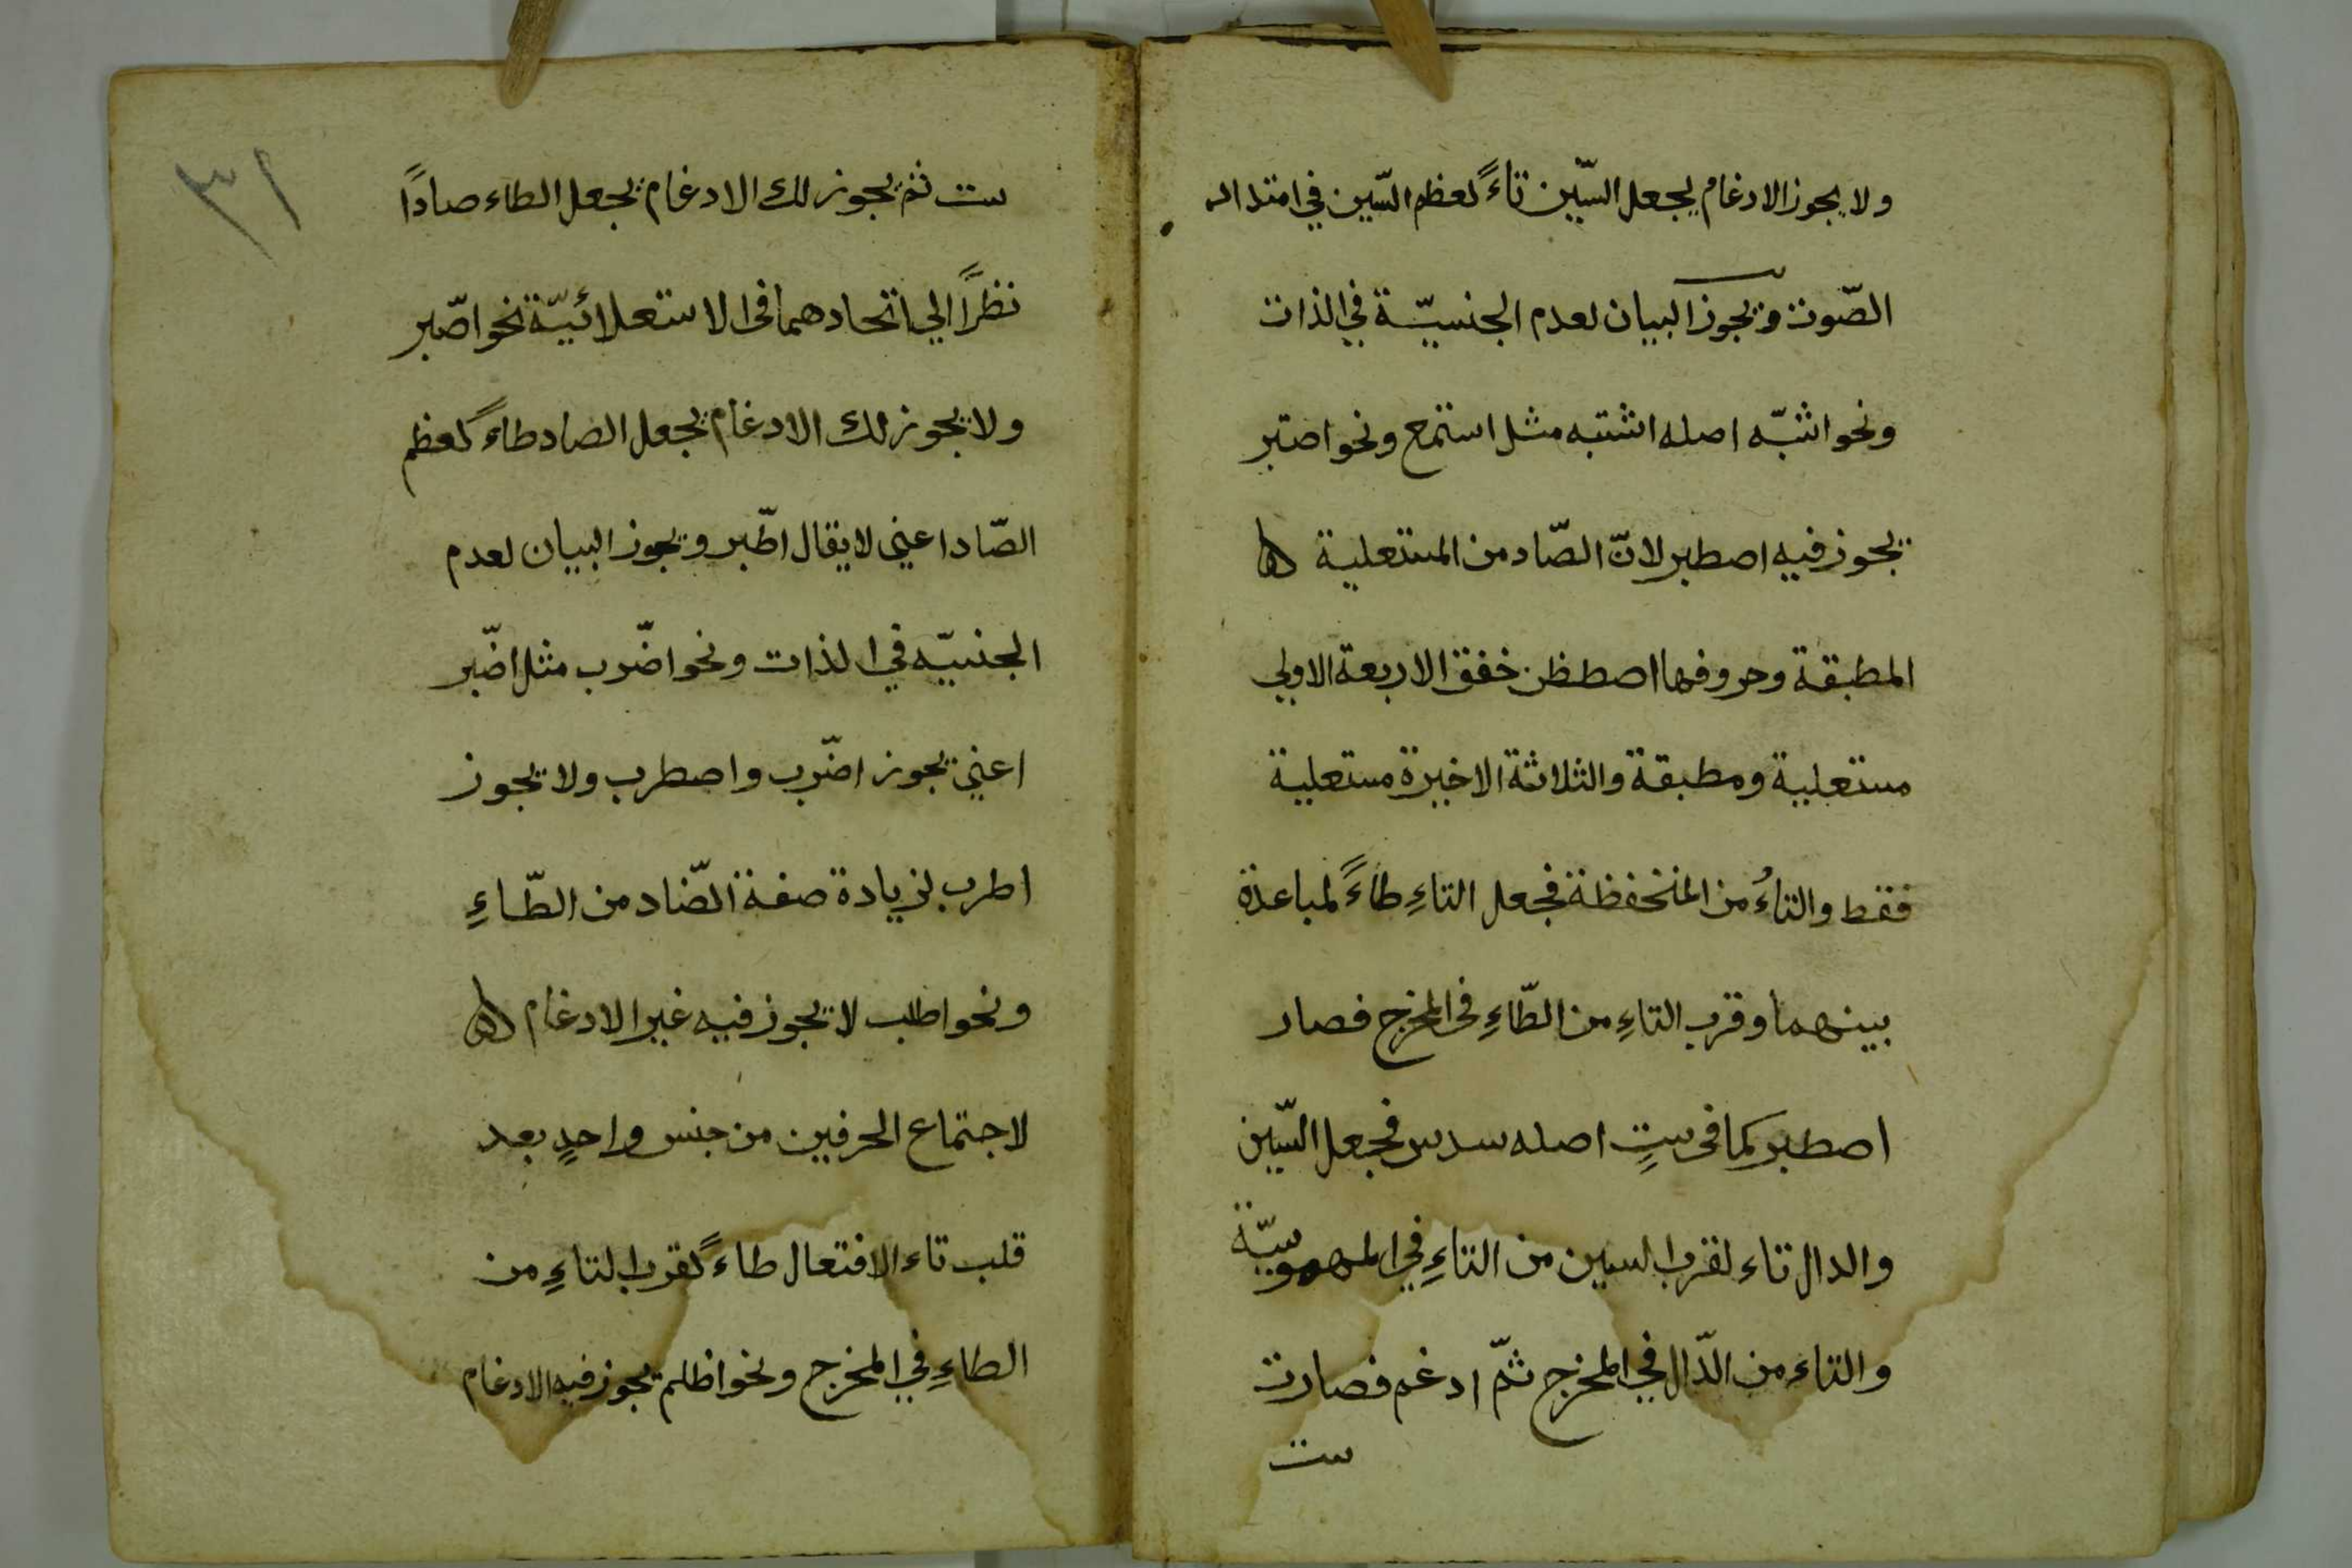 ولا يجوز الادغام بجعل السّين تاءً لعظم السّين في امتداد
الصّوت ويجوز البيان لعدم الجنسيّة في الذات
ونحو اشبّه اصله اشتبه مثل استمع ونحو اصتبر
يجوز فيه اصطبر لانّ الصّاد من المستعلية
المطبقة وحروفها اصطظن خفق الاربعة الاولي
مستعلية ومطبقة والثلاثة الاخيرة مستعلية
فقط والتاءُ من المنخفظة فجعل التاءِ طاءً لمباعدة
بينهما وقرب التاءِ من الطّاءِ فى المخرج فصار
اصطبر كما فى ستٍ اصله سدس فجعل السّين
والدال تاء لقرب السين من التاءِ في المهموسيّة
والتاء من الدّال في المخرج ثمّ ادغم فصارت
ست
٣١
ست ثم يجوز لك الادغام بجعل الطاء صادًا
نظرًا الي اتحادهما فى الاستعلائيّة نحو اصّبر
ولا يجوز لك الادغام بجعل الصاد طاءً لعظم
الصّاد اعني لا يقال اطّبر ويجوز البيان لعدم
الجنسيّه في الذات ونحو اضّرب مثل اضّبر
اعني يجوز اضّرب واضطرب ولا يجوز
اطرب لزيادة صفة الضّاد من الطّاءِ
ونحو اطلب لا يجوز فيه غير الادغام
لاجتماع الحرفين من جنس واحدٍ بعد
قلب تاء الافتعال طاءً لقرب التاءِ من
الطاءِ في المخرج ونحو اظلم يجوز فيه الادغام